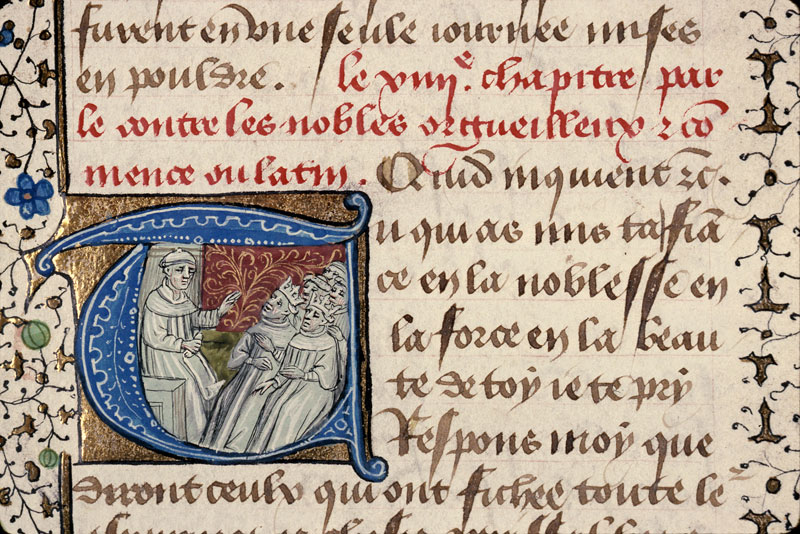 furent en une seule iournee mises
en pouldre. le xiiii.e chapitre par
le contre les nobles orgueilleux ⁊ cō
mence ou latin. Quid inquient ⁊c.
Tu qui as mis ta fiā
ce en la noblesse en
la force en la beau
te de toy ie te pry
Respons moy que
diront ceulx qui ont fichee toute le